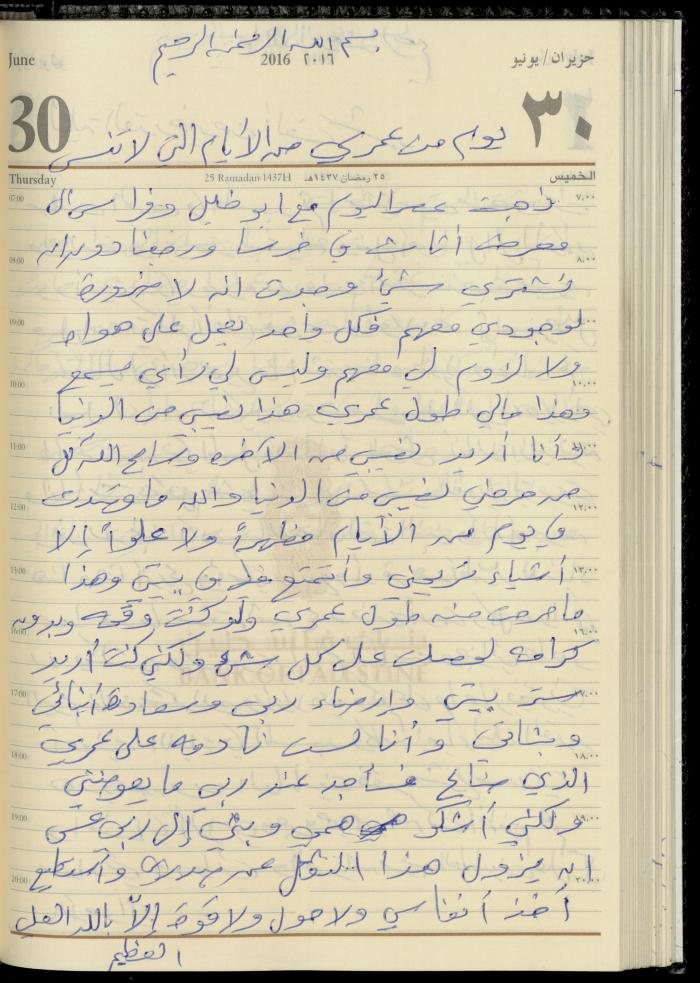 بسم الله الرحمن الرحيم
June 2016 ٢٠١٦ حزيران / يونيو
30 ٣٠
يوم من عمري من الأيام التي لا تنسى
Thursday 25 Ramadan 1437H ٢٥ رمضان ١٤٣٧هـ الخميس
ذهبت عصر اليوم مع ابو خليل وفرا سرال
معرض أثاث في خرسا ورجعنا دون ان
نشتري شيئ وجدت انه لا ضرورة
لوجودي معهم فكل واحد يعمل على هواه
ولا لزوم لي معهم وليس لي رأي يسمع
وهذا مالي طول عمري هذا نصيبي من الدنيا
وأنا أريد نصيبي من الآخره وسامح الله كل
من حرمني نصيبي من الدنيا والله ما قصدت
في يوم من الأيام مظهراً ولا علواً إلا
أشياء تريحني وأتمتع بها في بيتي وهذا
ما حرمت منه طول عمري ولو كنت وقحه وبدون
كرامه لحصلت على كل شيئ ولكني كنت أريد
ستر بيتي وإرضاء ربي وسعادة أبنائي
وبناتي وأنا لست نادمه على عمري
الذي ضاع فسأجد عند ربي ما يعوضني
ولكني أشكو همي وبثي إلى ربي عسى
ان يزول هذا الثقل عن صدري وأستطيع
أخذ أنفاسي ولا حول ولا قوة إلا بالله العلي
العظيم
07:00 ٧,٠٠
08:00 ٨,٠٠
09:00
10:00 ١٠,٠٠
11:00
12:00 ١٢,٠٠
13:00 ١٣,٠٠
16:00 ١٦,٠٠
17:00 ١٧,٠٠
18:00 ١٨,٠٠
19:00 ١٩,٠٠
20:00 ٢٠,٠٠
BANK OF PALESTINE